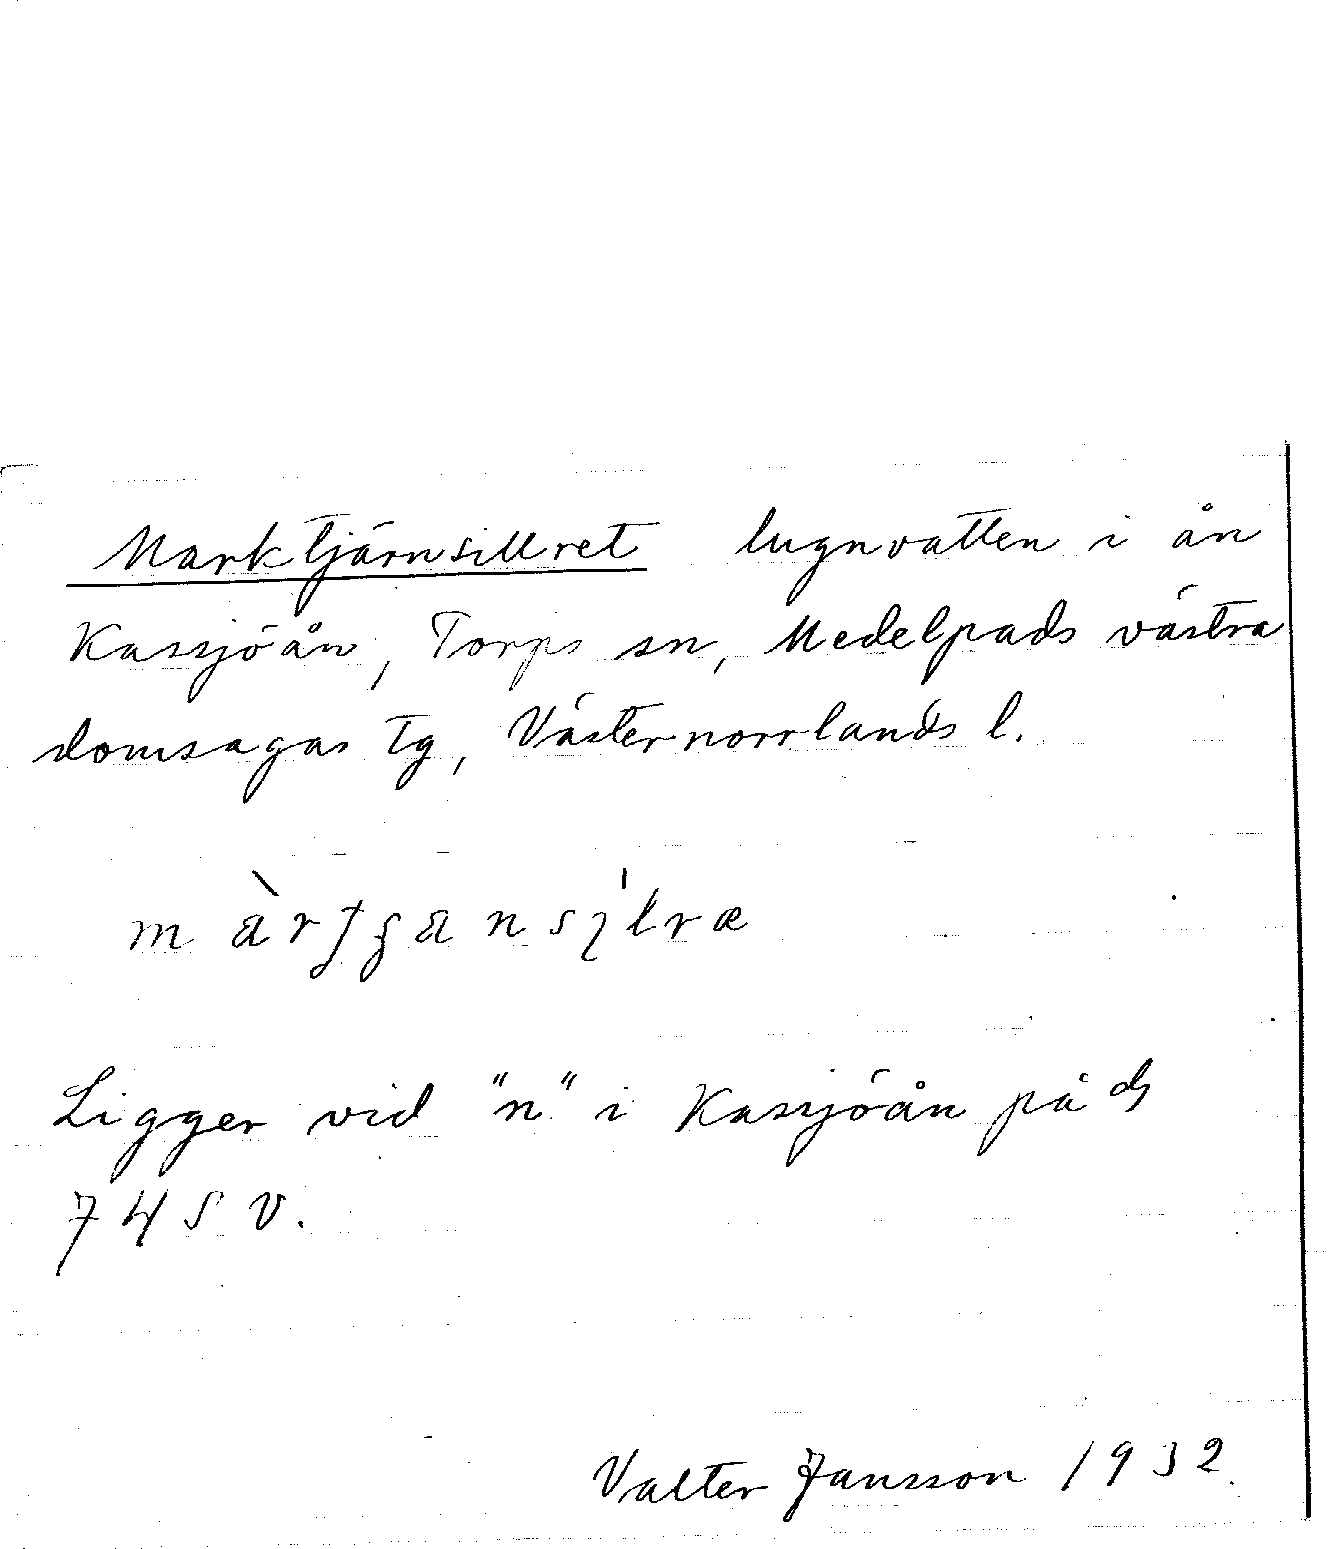 Marktjärnsillret lugnvatten i ån
Kassjöån, Torps sn, Medelpads västra
domsagas tg, Västernorrlands l.
Ligger vid "n" i Kassjöån på
74 S V.
Valter Jansson 1932.